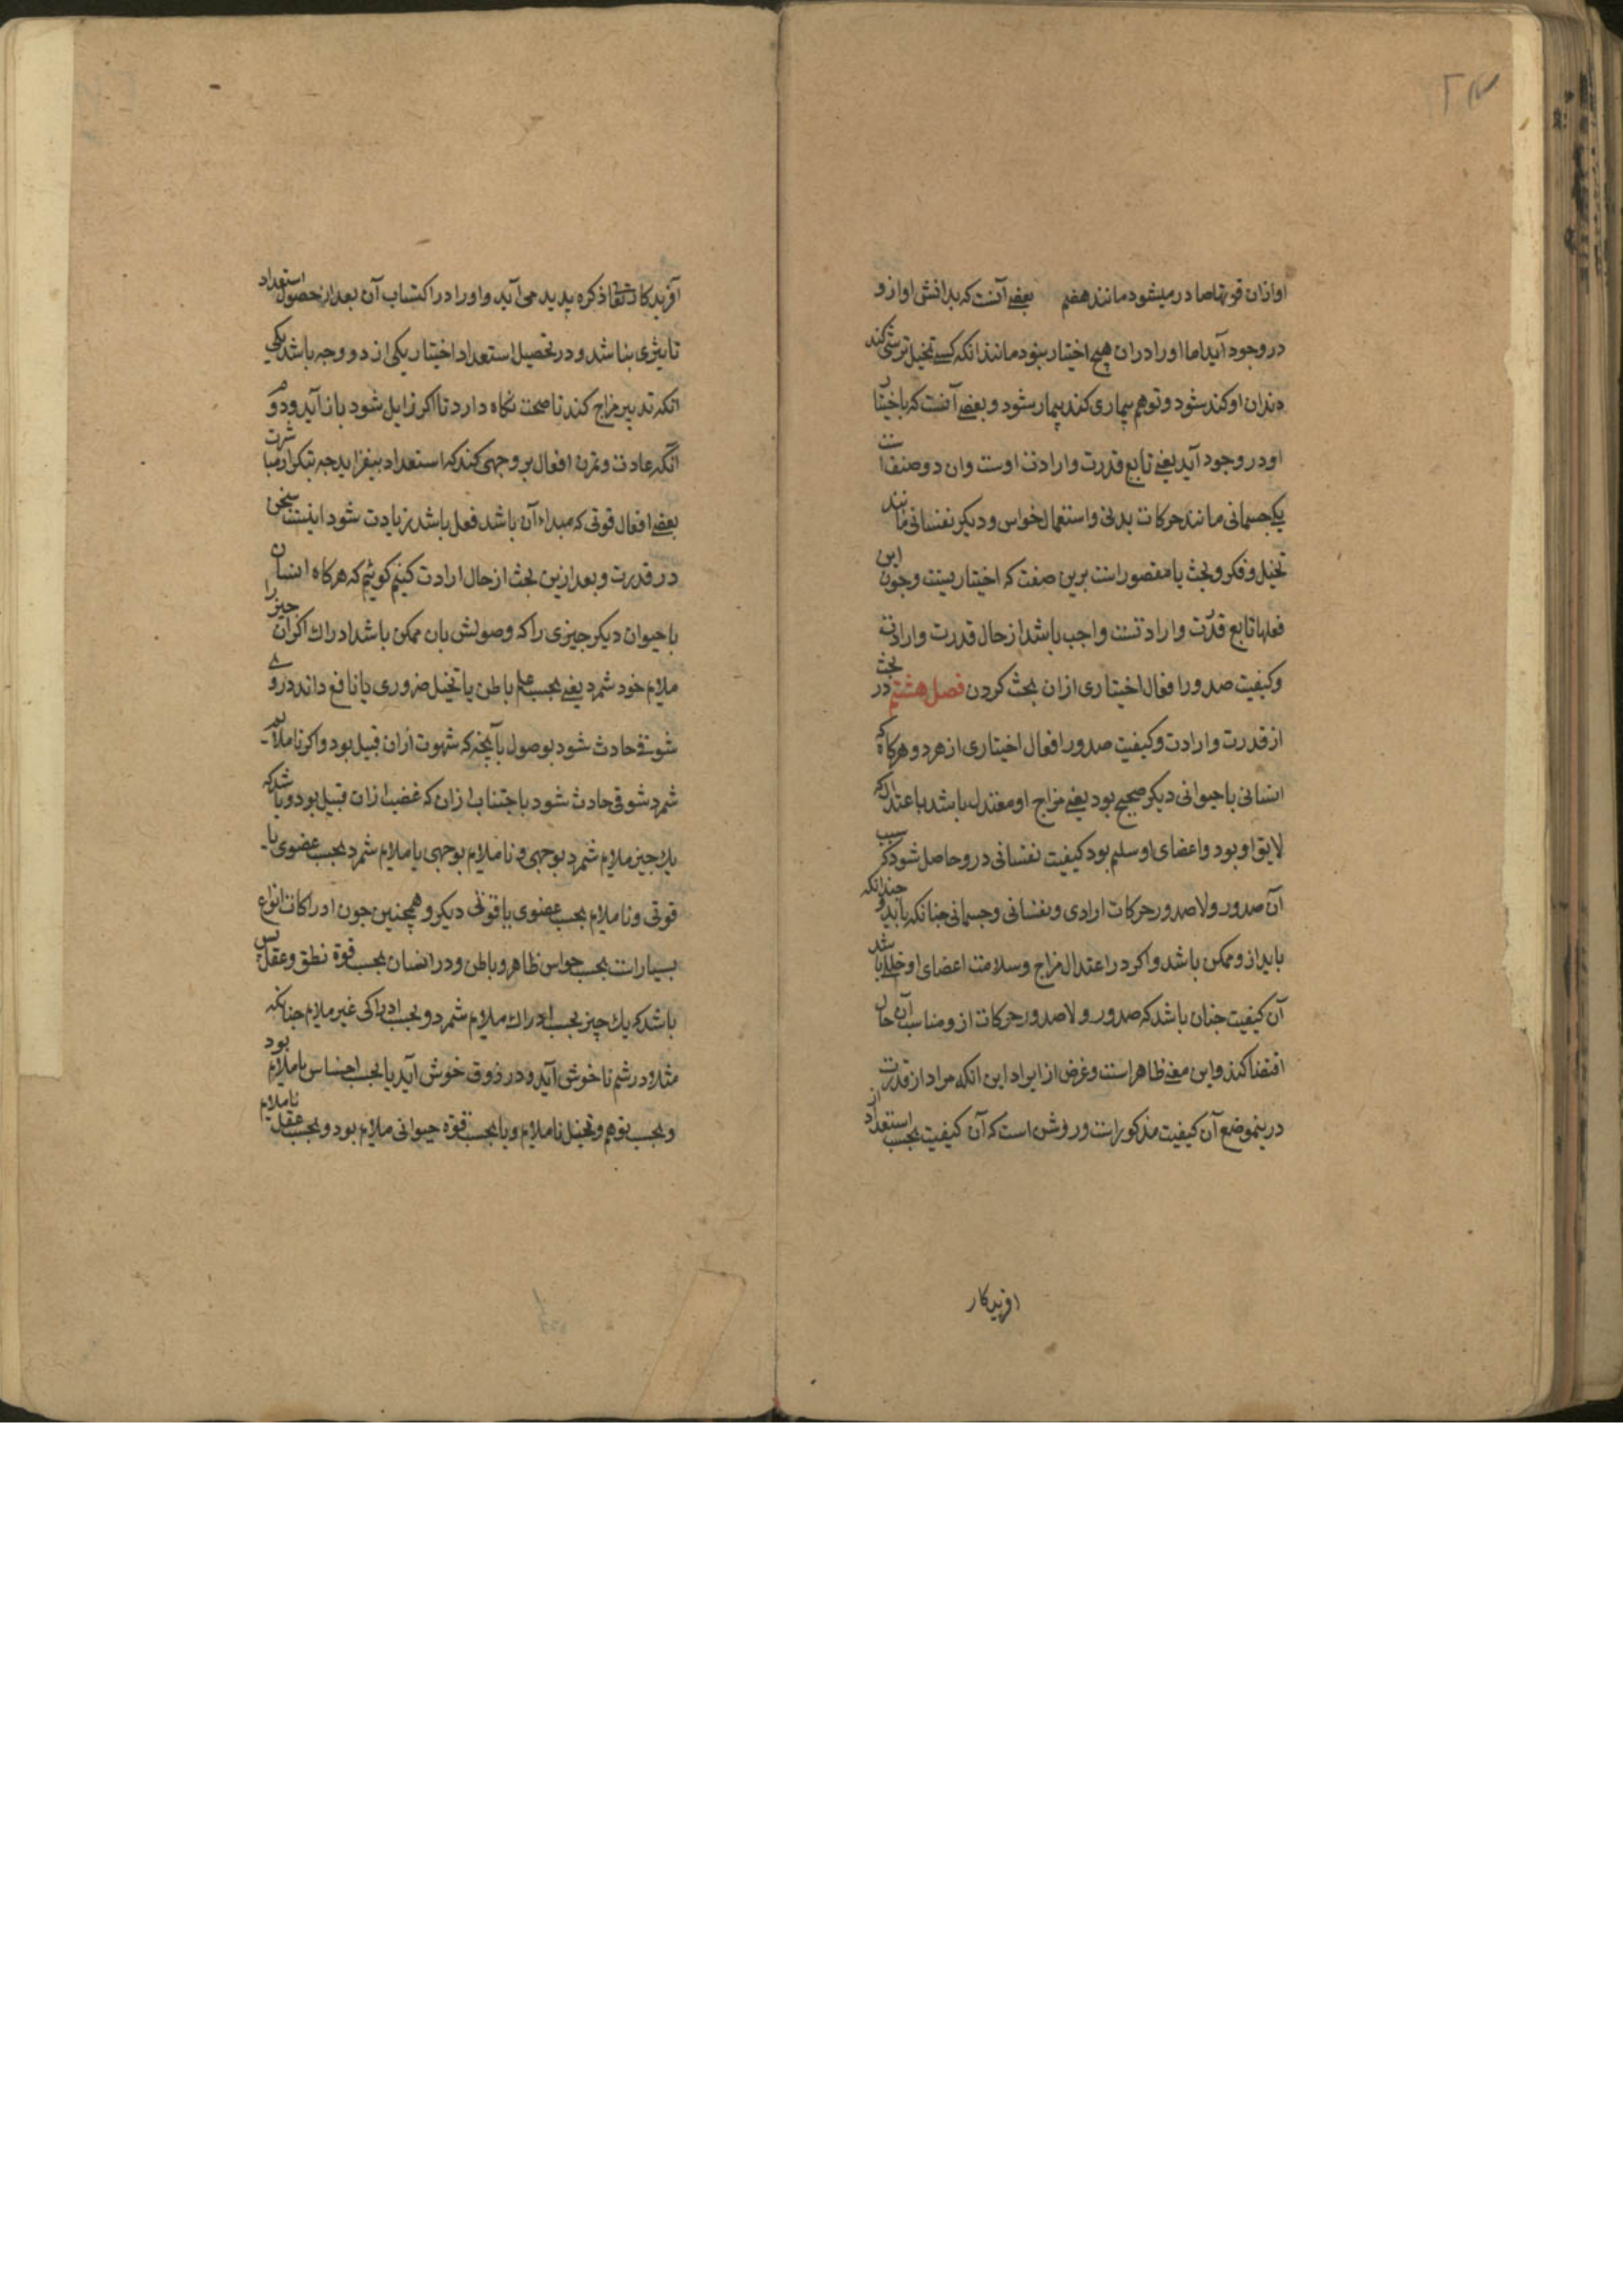 ۲۳
او ازان قوتها صادر میشود مانند هضم بعضی آنست که بدانش او ازو
در وجود آید اما او را در ان هیچ اختیار نبود مانند انکه کسی تخیل ترشی کند
دندان او کند شود و توهم بیماری کند بیمار شود و بعضی آنست که باختیار
او در وجود آید یعنی تابع قدرت و ارادت اوست وان دو صنف است
یکی جسمانی مانند حرکات بدنی و استعمال حواس و دیکر نفسانی مانند
تخیل و فکر و بحث یا مقصور است برین صفت که اختیاریست وچون این
فعلها تابع قدرت و ارادتست واجب باشد از حال قدرت و ارادت
وکیفیت صدور افعال اختیاری ازان بحث کردن فصل هشتم در بحث
از قدرت و ارادت وکیفیت صدور افعال اختیاری از هر دو هرکاه که
انسانی یا حیوانی دیکر صحیح بود یعنی مزاج او معتدل باشد باعتدالی که
لایق او بود و اعضای او سلیم بود کیفیت نفسانی درو حاصل شود که سبب
آن صدور ولا صدور حرکات ارادی ونفسانی وجسمانی چنانکه باید و چندانکه
باید ازو ممکن باشد واکر در اعتدال مزاج وسلامت اعضای او خللی باشد
آن کیفیت چنان باشد که صدور ولا صدور حرکات ازو مناسب آن حال
اقتضا کند واین معنی ظاهر است وغرض از ایراد این انکه مراد از قدرت
درینموضع آن کیفیت مذکور است وروشن است که آن کیفیت بحسب استعداد از
افریدکار
آفریدکار تعالی ذکره پدید می آید و او را در اکتساب آن بعد از حصول استعداد
تاثیری نباشد و در تحصیل استعداد اختیار یکی از دو وجه باشد یکی
انکه تدبیر مزاج کند تا صحت نکاه دارد تا اکر زایل شود باز آید ودوم
انکه عادت وتمرن افعال بر وجهی کند که استعداد بیفزاید چه بتکرار مباشرت
بعضی افعال قوتی که مبداء آن باشد فعل باشد زیادت شود اینست سخن
در قدرت و بعد ازین بحث از حال ارادت کنیم کوئیم که هرکاه انسان
یا حیوان دیکر چیزی را که وصولش بان ممکن باشد ادراک اکر ان چیز را
ملایم خود شمرد یعنی بحسب علم باطن یا تخیل ضروری یا نافع داند در وی
شوقی حادث شود بوصول بآنچه که شهوت ازان قبیل بود واکر ناملایم
شمرد شوقی حادث شود باجتناب ازان که غضب ازان قبیل بود وباشد که
یک چیز ملایم شمرد بوجهی و ناملایم بوجهی یا ملایم شمرد بحسب عضوی یا
قوتی وناملایم بحسب عضوی یا قوتی دیکر و همچنین چون ادراکات انواع
بسیار است بحسب حواس ظاهر و باطن و در انسان بحسب قوة نطق وعقل پس
باشد که یک چیز بحسب ادراک ملایم شمرد و بحسب ادراکی غیر ملایم چنانکه
مثلا در شم ناخوش آید و در ذوق خوش آید یا بحسب احساس ناملایم بود
و بحسب توهم وتخیل ناملایم و یا بحسب قوة حیوانی ملایم بود و بحسب عقل ناملایم